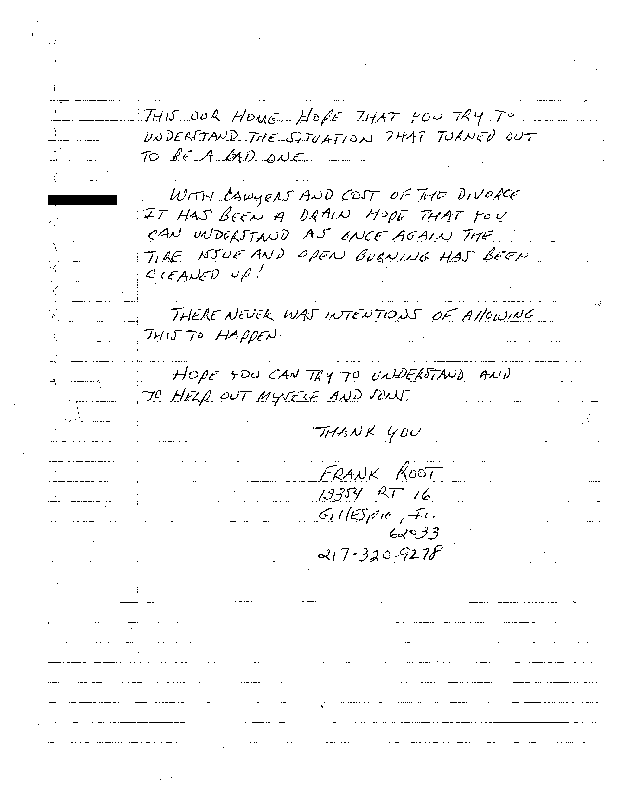 THIS OUR HOME. HOPE THAT YOU TRY TO
UNDERSTAND THE SITUATION THAT TURNED OUT
TO BE A BAD ONE
WITH LAWYERS AND COST OF THE DIVORCE
IT HAS BEEN A DRAIN HOPE THAT YOU
CAN UNDERSTAND AS ONCE AGAIN THE
TIRE ISSUE AND OPEN BURNING HAS BEEN
CLEANED UP!
THERE NEVER WAS INTENTIONS OF ALLOWING
THIS TO HAPPEN.
HOPE YOU CAN TRY TO UNDERSTAND AND
TO HELP OUT MYSELF AND SONS.
THANK YOU
FRANK ROOT
13354 RT 16
GILLESPIE, IL.
62033
217-320-9278